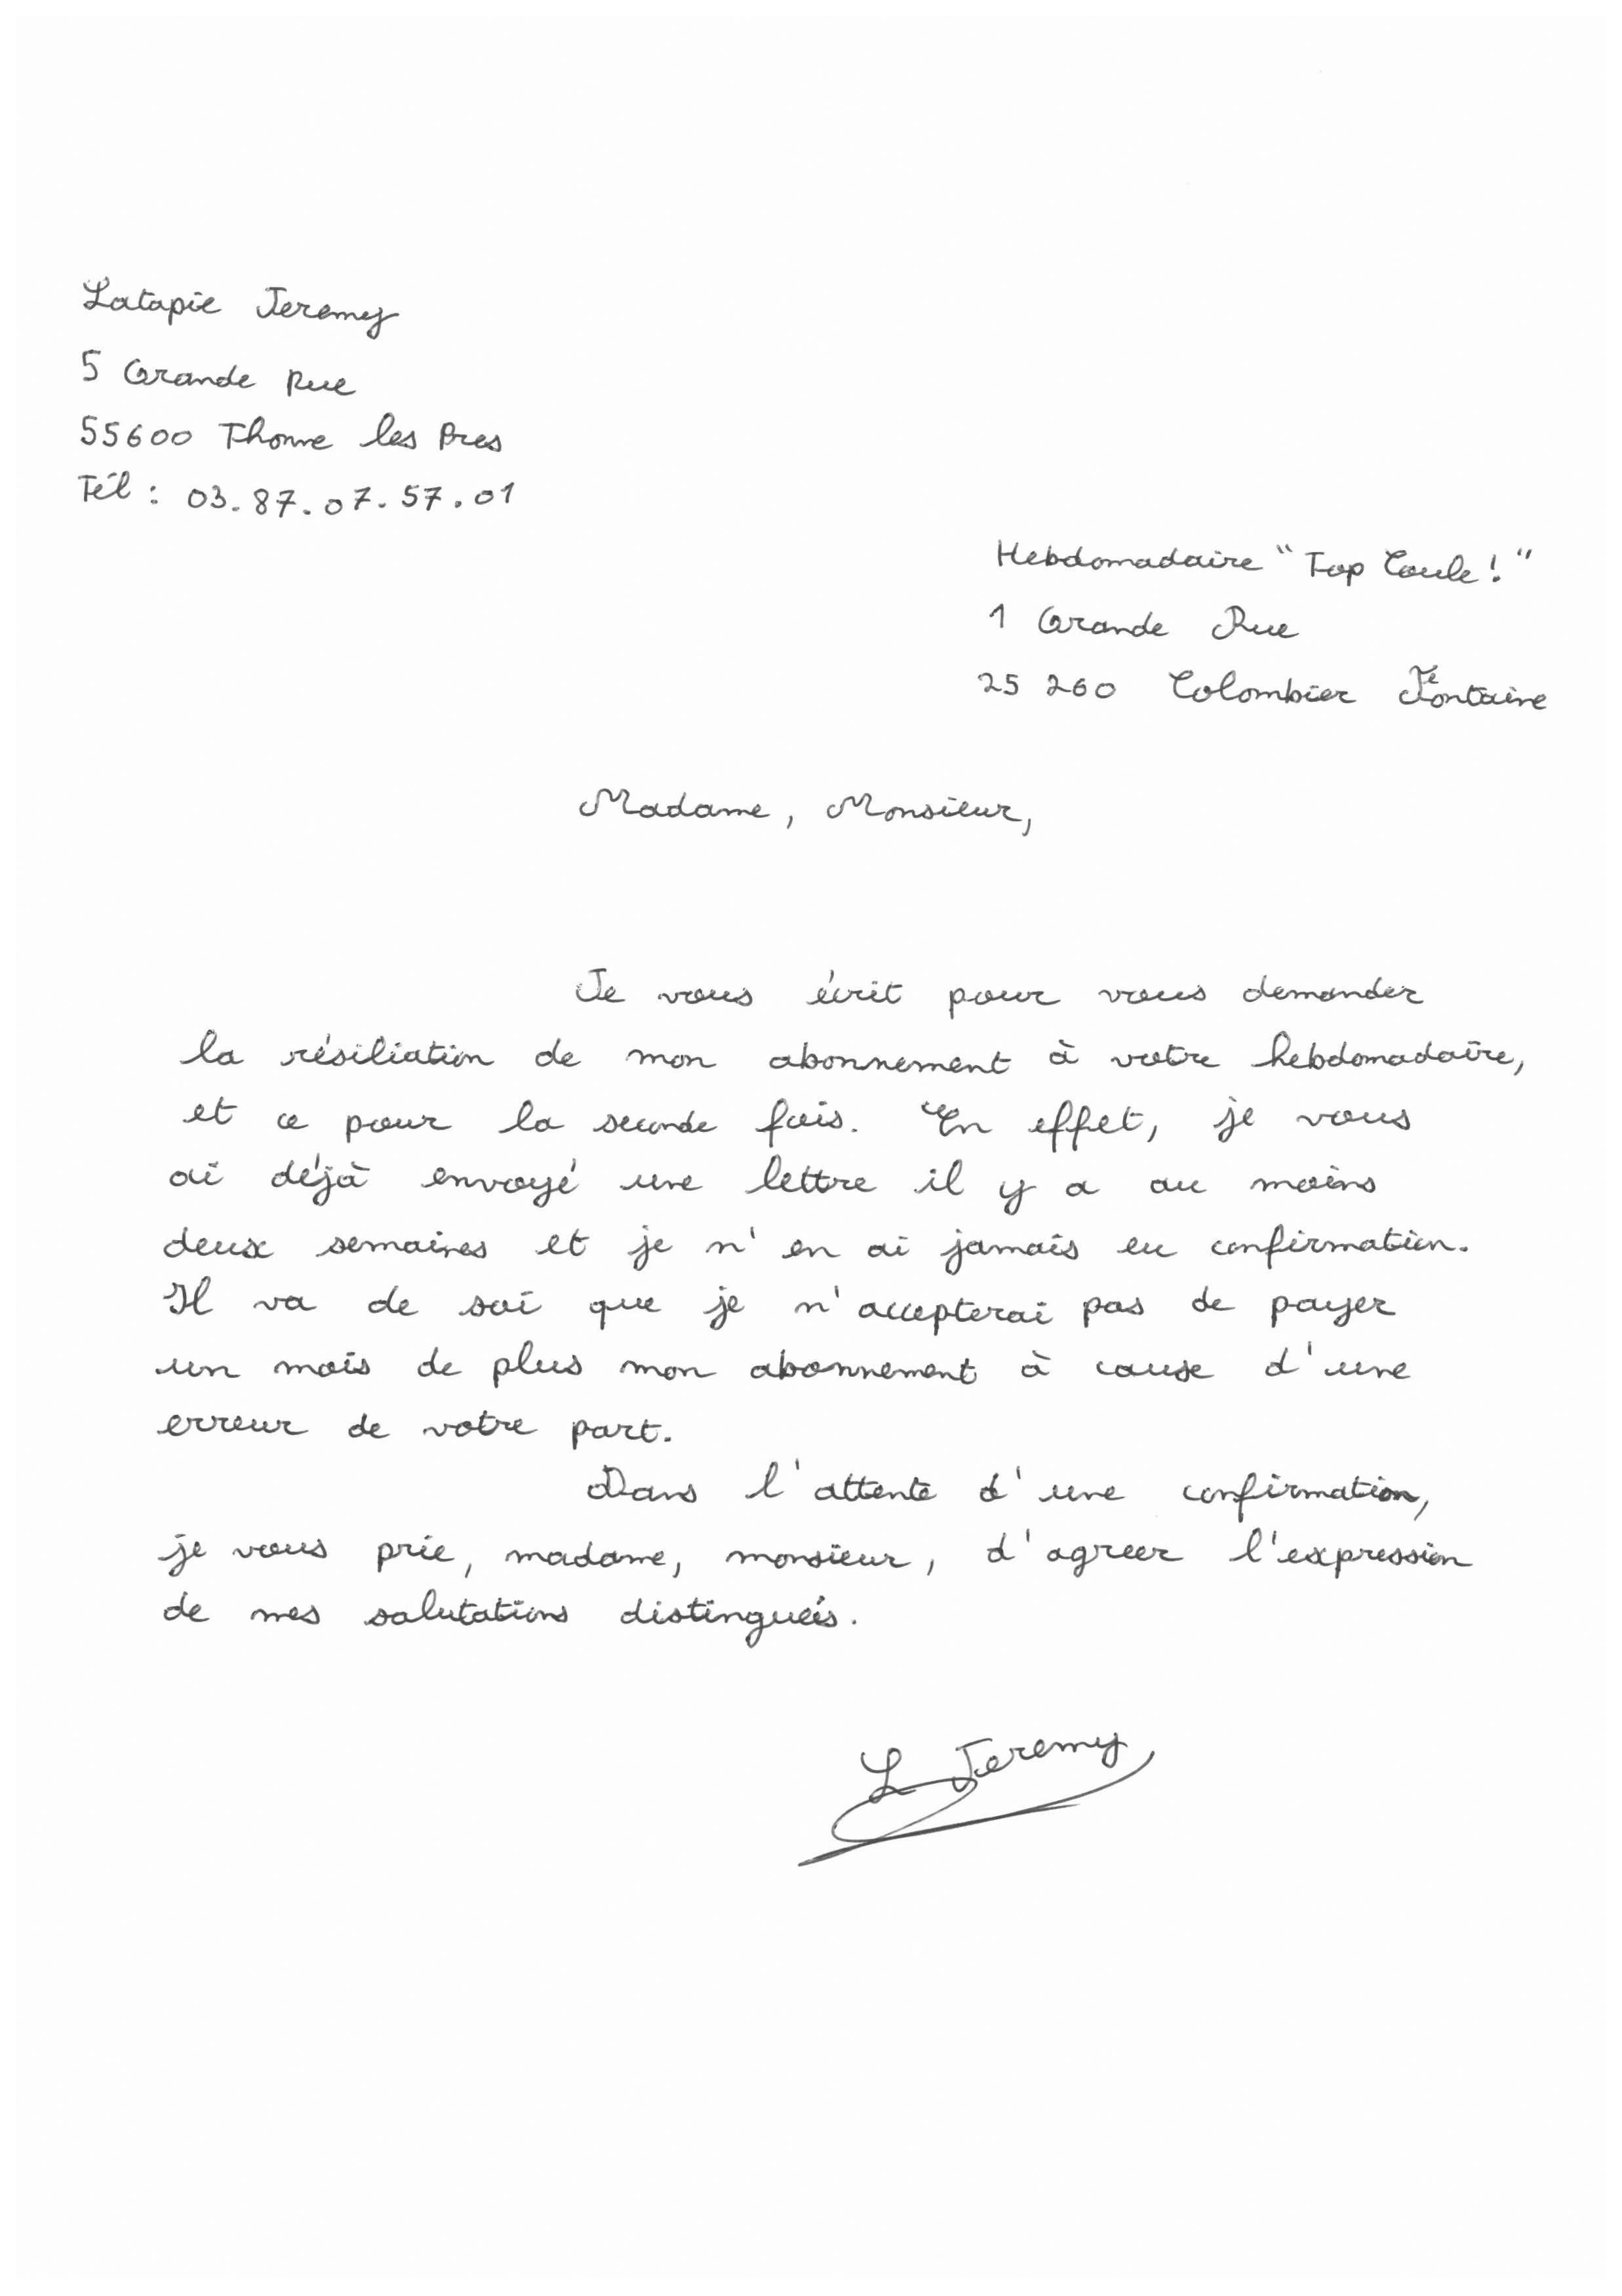 Latapie Jeremy
5 Grande Rue
55600 Thonne les Pres
Tél : 03.87.07.57.01
Hebdomadaire "Top Coule !"
1 Grande Rue
25 260 Colombier Fontaine
Madame, Monsieur,
Je vous écrit pour vous demander
la résiliation de mon abonnement à votre hebdomadaire,
et ce pour la seconde fois. En effet, je vous
ai déjà envoyé une lettre il y a au moins
deux semaines et je n'en ai jamais eu confirmation.
Il va de soi que je n'accepterai pas de payer
un mois de plus mon abonnement à cause d'une
erreur de votre part.
Dans l'attente d'une confirmation,
je vous prie, madame, monsieur, d'agreer l'expression
de mes salutations distingués.
L Jeremy